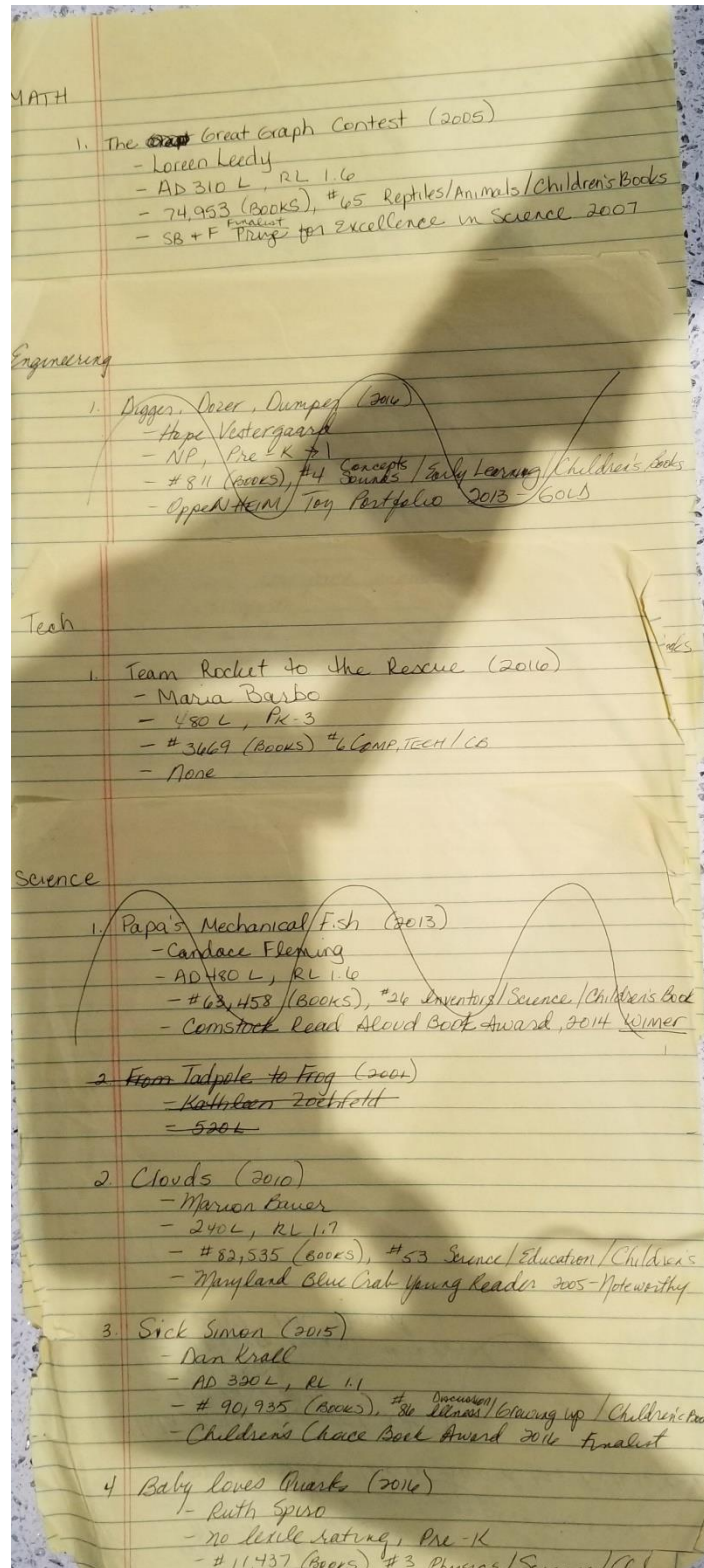 MATH
1. The Great Graph Contest (2005)
- Loreen Leedy
- AD 310 L, RL 1.6
- 74,953 (BOOKS), #65 Reptiles/Animals/Children's Books
- SB + F Finalist Prize for Excellence in Science 2007
Engineering
1. Digger, Dozer, Dumper (2016)
- Hope Vestergaard
- NP, Pre-K → 1
- #811 (BOOKS), #4 Concepts Sounds / Early Learning / Children's Books
- OppeNHEIM Toy Portfolio 2013 - GOLD
Tech
1. Team Rocket to the Rescue (2016)
- Maria Barbo
- 480 L, PK-3
- #3669 (BOOKS) #6 COMP, TECH / CB
- None
Science
1. Papa's Mechanical Fish (2013)
- Candace Fleming
- AD 480 L, RL 1.6
- #63,458 (BOOKS), #26 Inventors / Science / Children's Book
- Comstock Read Aloud Book Award, 2014 Winner
2 From Tadpole to Frog (2001)
- Kathleen Zoehfeld
- 520 L
2 Clouds (2010)
- Marion Bauer
- 240L, RL 1.7
- #82,535 (BOOKS), #53 Science / Education / Children's
- Maryland Blue Crab Young Reader 2005 - Noteworthy
3. Sick Simon (2015)
- Dan Krall
- AD 320 L, RL 1.1
- # 90,935 (BOOKS), #86 Discussion Illness / Growing up / Children's Boo
- Children's Choice Book Award 2016 Finalist
4 Baby loves Quarks (2016)
- Ruth Spiro
- no lexile rating, Pre-K
- #11437 (Books) #3 Physics /